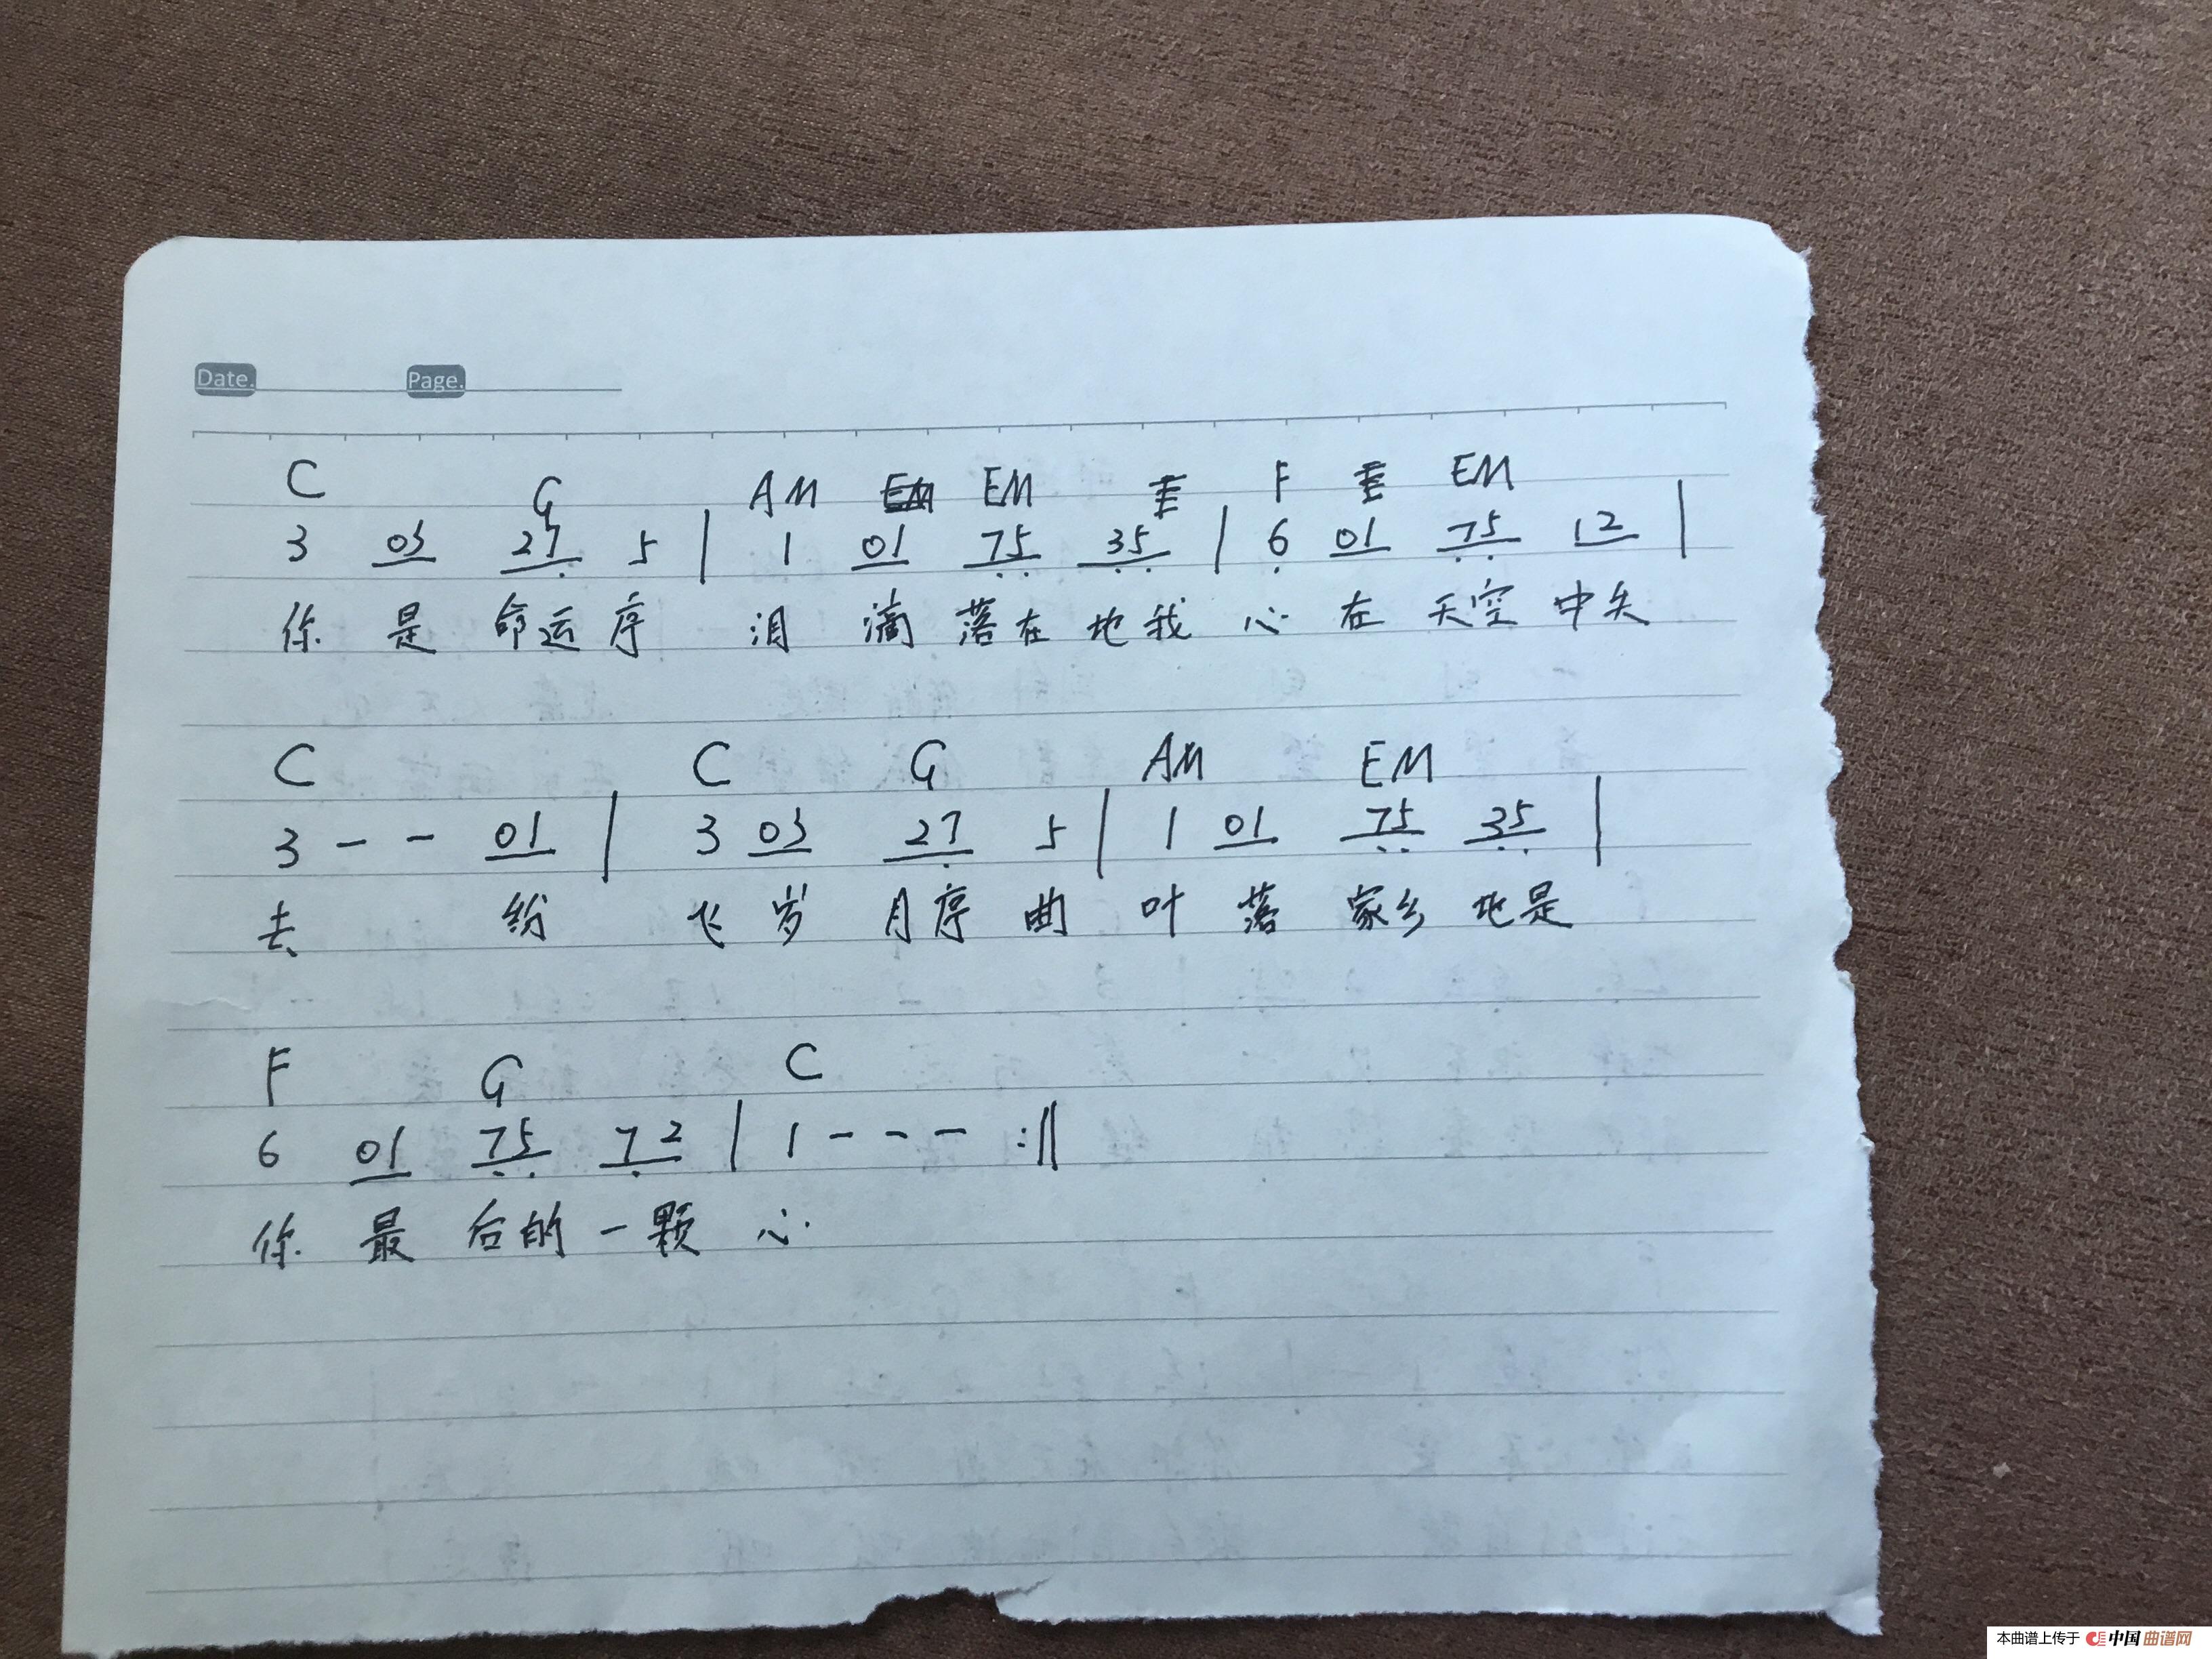 Date. Page.
C G AM EM F EM
3 03 27 5 | 1 01 75 35 | 6 01 75 12 |
你 是 命运 序 泪 滴 落在 地我 心 在 天空 中失
C C G AM EM
3 - - 01 | 3 03 27 5 | 1 01 75 35 |
去 纷 飞 岁 月序 曲 叶 落 家乡 地是
F G C
6 01 75 72 | 1 - - - :||
你 最 后的 一颗 心
本曲谱上传于 中国曲谱网